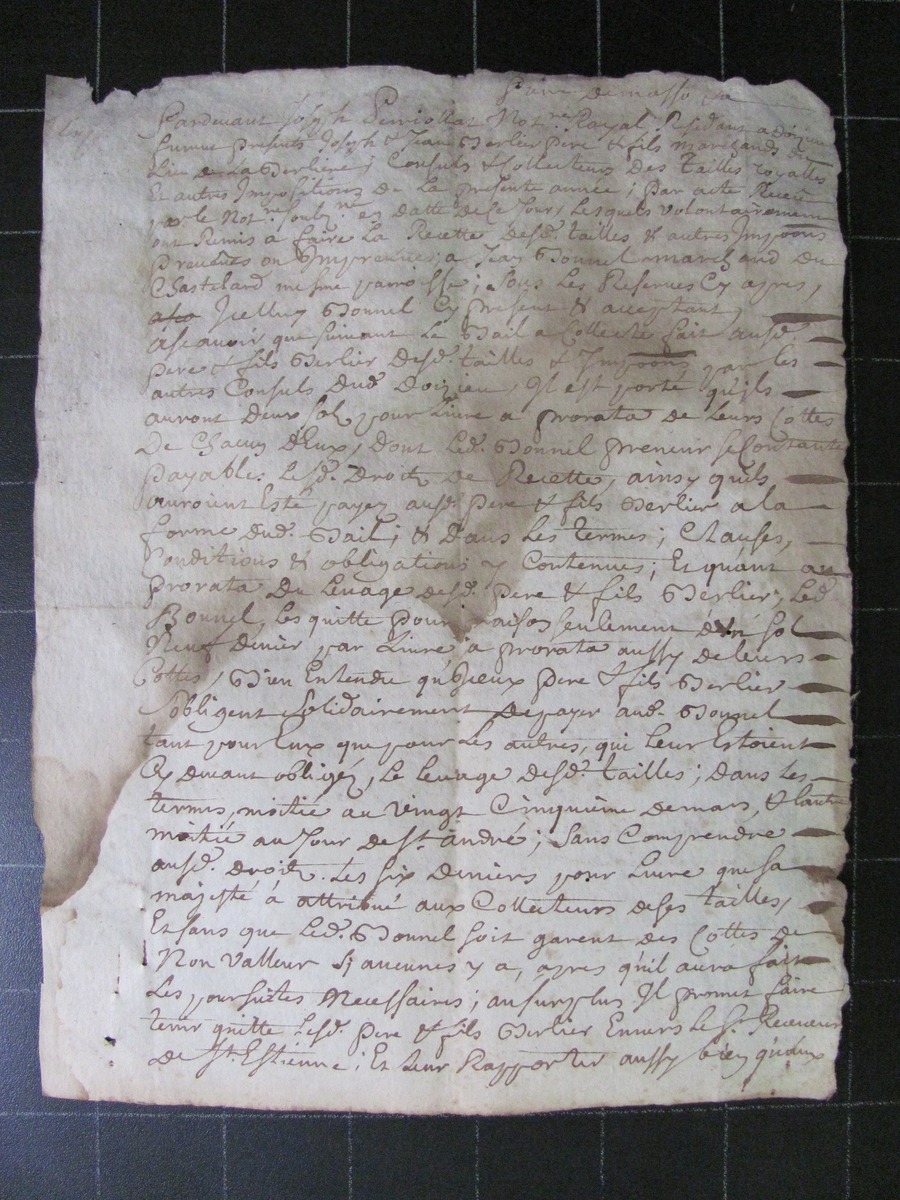 Pardevant Joseph Not.re Royal, Residant a Doizieu
furent présents Joseph & Jean Berlier père & fils marchands du
Lieu de La Berliere; Consuls & Collecteurs Des Tailles royalles
Et autres Impositions de La présente année; par acte Receu
par le Not.re soubz.né en datte de ce Jour, Lesquels volontairement
ont Remis a faire La Recette Desd. tailles & autres Impoons
preveües ou Impreveües, a Jean Bonnel marchand Du
Chastelard mesme parroisse; sous Les Reserves Cy apres,
Icelluy Bonnel Cy present & acceptant,
ascavoir que suivant Le Bail a Collecte fait ausd.
pere & fils Berlier Desd. tailles & Impoons par les
autres Consuls Dud. Doizieu, Il est porté qu'ils
auront Deux sols pour Livre a prorata de Leurs Cottes
De Chacun d'Eux, Dont Led. Bonnel preneur se Contante
payables Lesd. Droits De Recette, ainsy quils
auroient Esté payez ausd. pere & fils Berlier a la
forme dud. Bail; & Dans Les termes, Clauses,
Conditions & obligations y Contenues; Et quant au
prorata Du Levage desd. pere & fils Berlier, Led.
Bonnel, Les quitte pour raison seulement d'un sol
Neuf denier par Livre a prorata aussy de leurs
Cottes, Bien Entendu qu'Iceux pere & fils Berlier
s'obligent solidairement De payer aud. Bonnel
tant pour Eux que pour Les autres, qui Leur Estoient
Cy devant obligéz, Le Levage desd. tailles; dans Les
termes, moitié au vingt Cinquième de mars, & l'autre
moitié au Jour de St. andré; sans Comprendre
ausd. droits Les six deniers pour Livre que sa
majesté à attribué aux Collecteurs de ses tailles,
Et sans que Led. Bonnel soit garent des Cottes de
Non valleur sy aucunes y a, apres qu'il aura fait
Les poursuites Necessaires; au surplus Il promet faire
tenir quitte Lesd. pere & fils Berlier Envers Le Sr. Receveur
de St. Estienne; Et Leur Rapporter aussy bien qu'aux